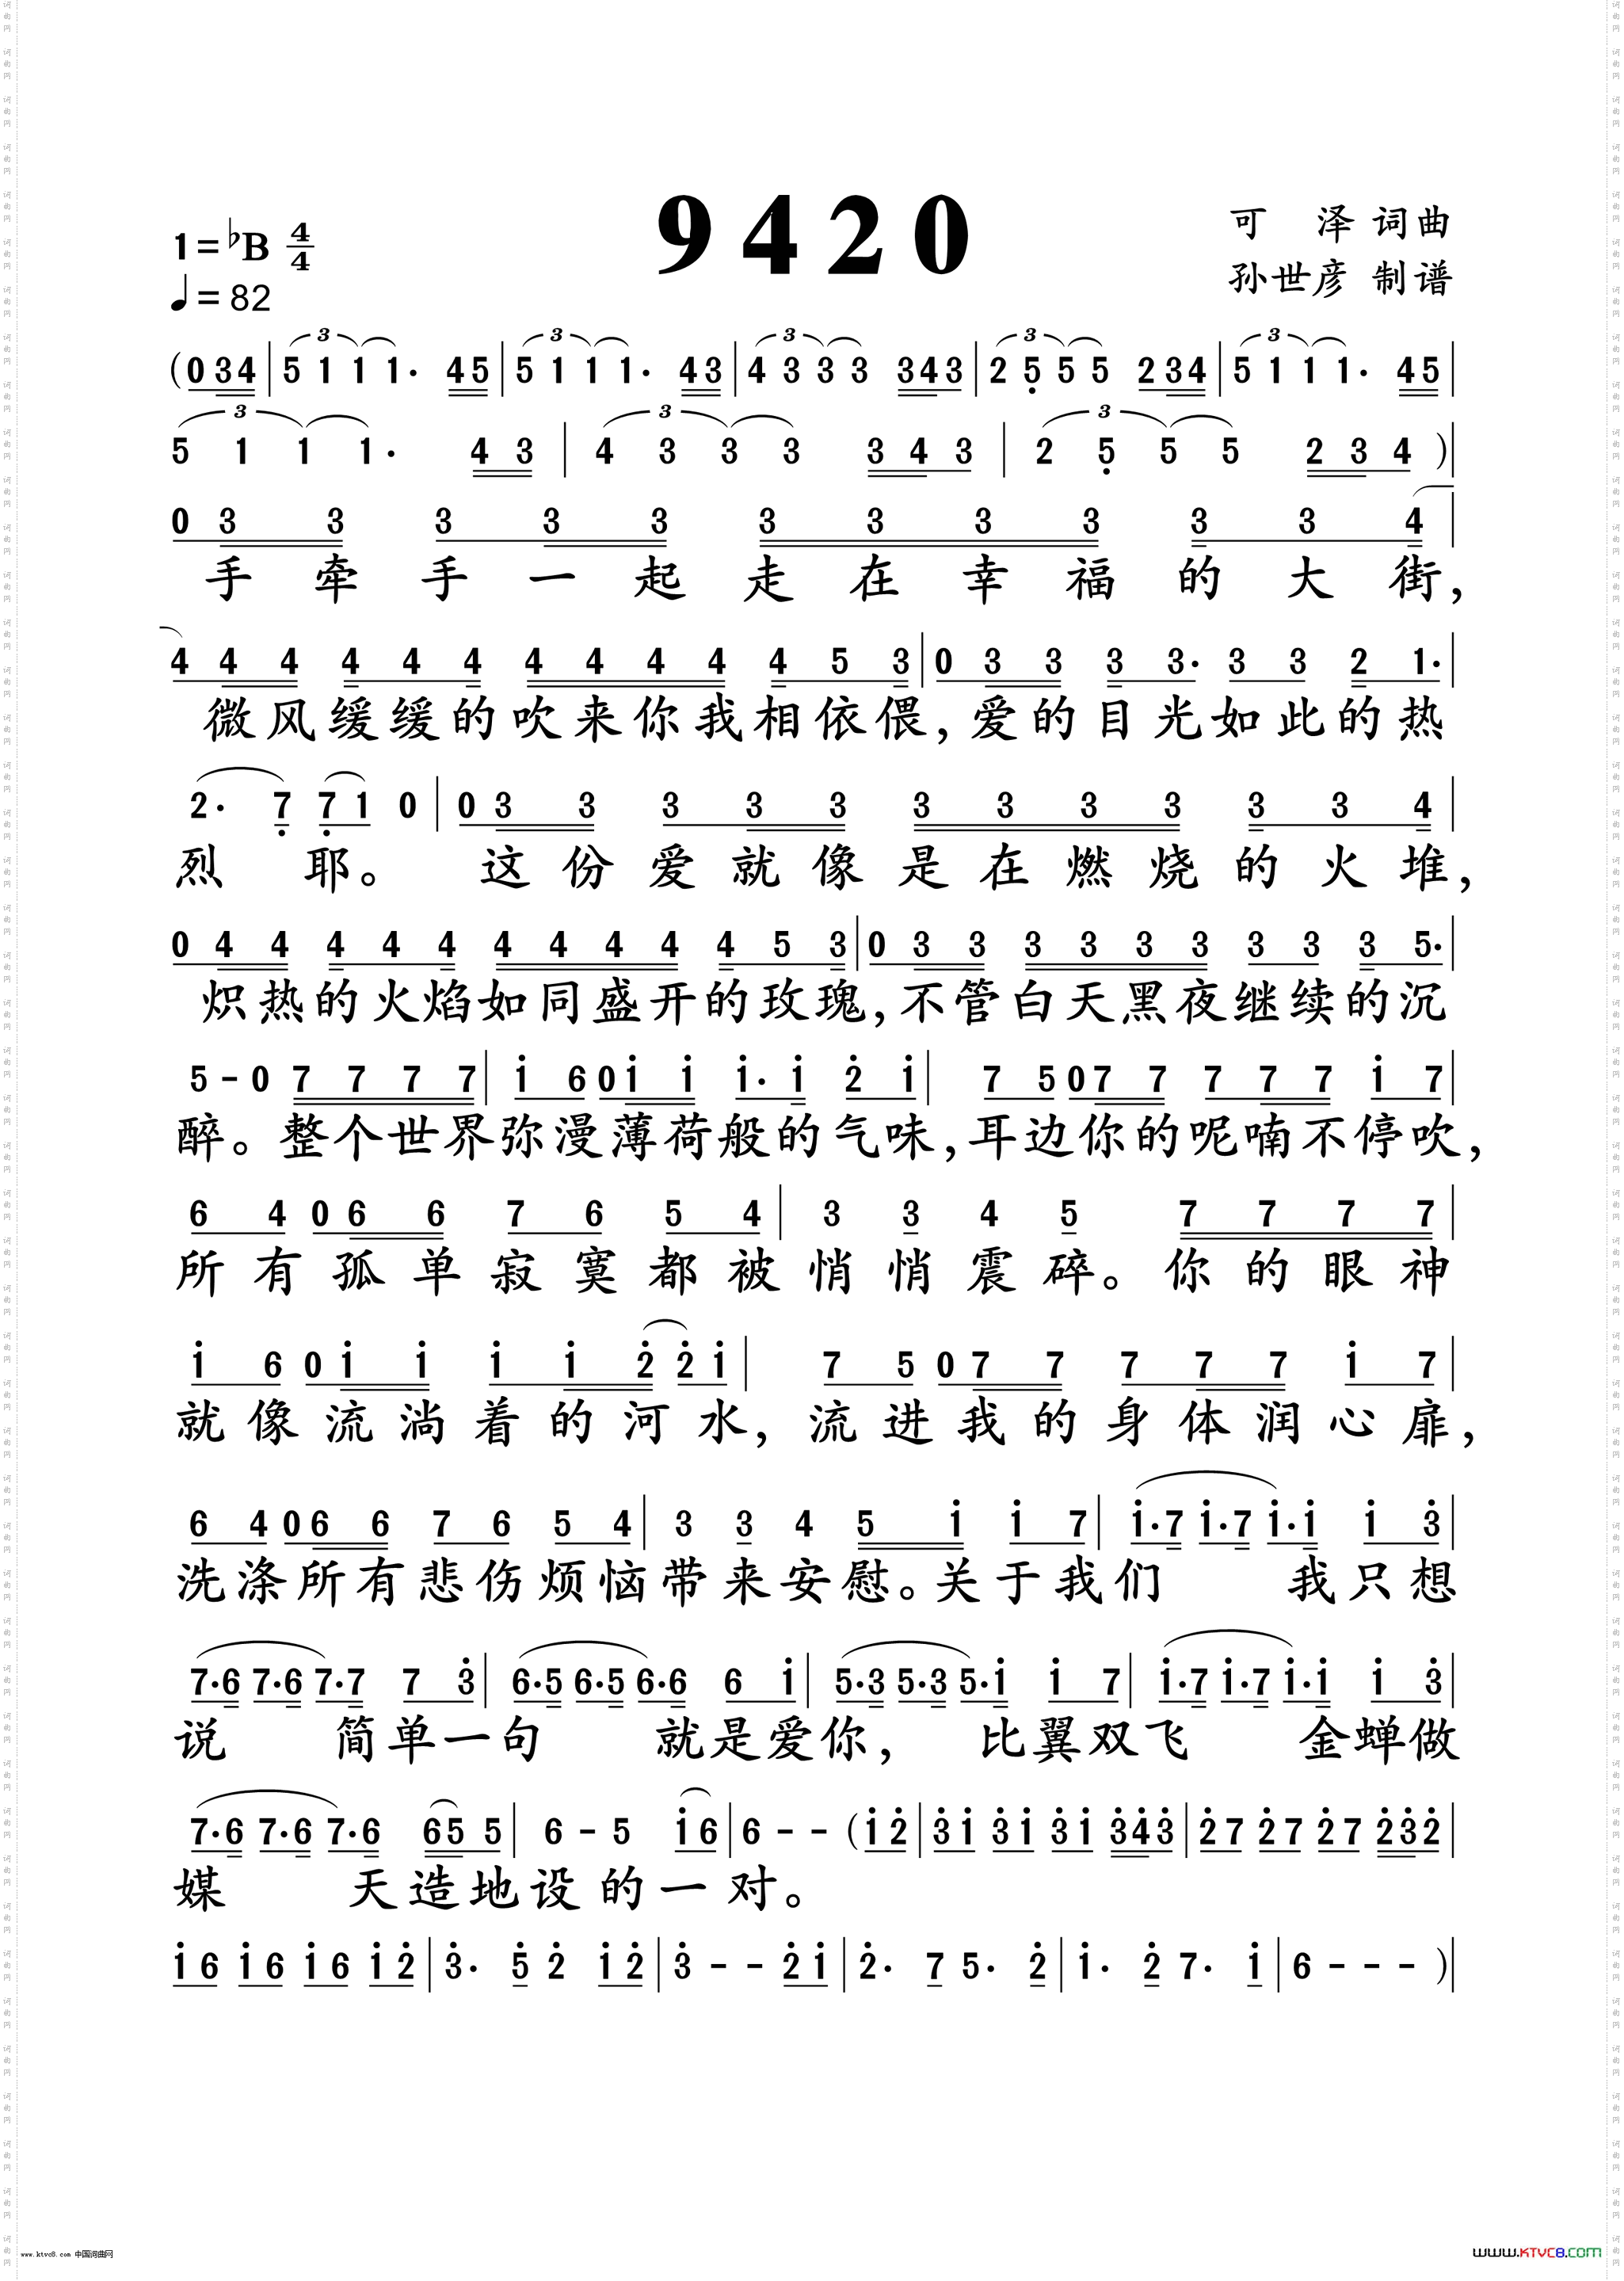 9420
1=♭B 4/4
♩=82
可 泽 词曲
孙世彦 制谱
(0 3 4 | 5 1 1 1· 4 5 | 5 1 1 1· 4 3 | 4 3 3 3 3 4 3 | 2 5̣ 5 5 2 3 4 | 5 1 1 1· 4 5 |
5 1 1 1· 4 3 | 4 3 3 3 3 4 3 | 2 5̣ 5 5 2 3 4 )|
0 3 3 3 3 3 3 3 3 3 3 3 4 |
手牵手一起走在幸福的大街,
4 4 4 4 4 4 4 4 4 4 4 5 3 | 0 3 3 3 3· 3 3 2 1· |
微风缓缓的吹来你我相依偎,爱的目光如此的热
2· 7̣ 7̣ 1 0 | 0 3 3 3 3 3 3 3 3 3 3 3 4 |
烈 耶。 这份爱就像是在燃烧的火堆,
0 4 4 4 4 4 4 4 4 4 4 5 3 | 0 3 3 3 3 3 3 3 3 3 5· |
炽热的火焰如同盛开的玫瑰,不管白天黑夜继续的沉
5 - 0 7 7 7 7 | 1̇ 6 0 1̇ 1̇ 1̇· 1̇ 2̇ 1̇ | 7 5 0 7 7 7 7 7 1̇ 7 |
醉。整个世界弥漫薄荷般的气味,耳边你的呢喃不停吹,
6 4 0 6 6 7 6 5 4 | 3 3 4 5 7 7 7 7 |
所有孤单寂寞都被悄悄震碎。你的眼神
1̇ 6 0 1̇ 1̇ 1̇ 1̇ 2̇ 2̇ 1̇ | 7 5 0 7 7 7 7 7 1̇ 7 |
就像流淌着的河水,流进我的身体润心扉,
6 4 0 6 6 7 6 5 4 | 3 3 4 5 1̇ 1̇ 7 | 1̇·7 1̇·7 1̇·1̇ 1̇ 3̇ |
洗涤所有悲伤烦恼带来安慰。关于我们 我只想
7·6 7·6 7·7 7 3̇ | 6·5 6·5 6·6 6 1̇ | 5·3 5·3 5·1̇ 1̇ 7 | 1̇·7 1̇·7 1̇·1̇ 1̇ 3̇ |
说 简单一句 就是爱你, 比翼双飞 金蝉做
7·6 7·6 7·6 6 5 5 | 6 - 5 1̇ 6 | 6 - - (1̇ 2̇ | 3̇ 1̇ 3̇ 1̇ 3̇ 1̇ 3̇ 4̇ 3̇ | 2̇ 7 2̇ 7 2̇ 7 2̇ 3̇ 2̇ |
媒 天造地设的一对。
1̇ 6 1̇ 6 1̇ 6 1̇ 2̇ | 3̇· 5̇ 2̇ 1̇ 2̇ | 3̇ - - 2̇ 1̇ | 2̇· 7 5· 2̇ | 1̇· 2̇ 7· 1̇ | 6 - - - )|
www.ktvc8.com 中国词曲网
WWW.KTVC8.COM